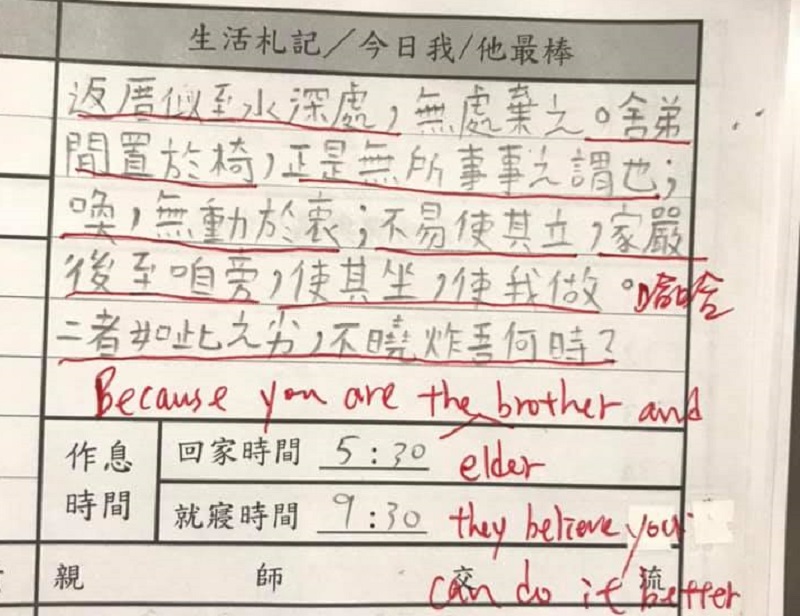 生活札記／今日我/他最棒
返厝似至水深處，無處棄之。舍弟
閒置於椅，正是無所事事之謂也；
喚，無動於衷；不易使其立，家嚴
後至咱旁，使其坐，使我做。哈哈
二者如此之劣，不曉炸吾何時？
Because you are the brother and
elder
作息時間 回家時間 5:30
就寢時間 9:30 they believe you
can do it better
親 師 交 流